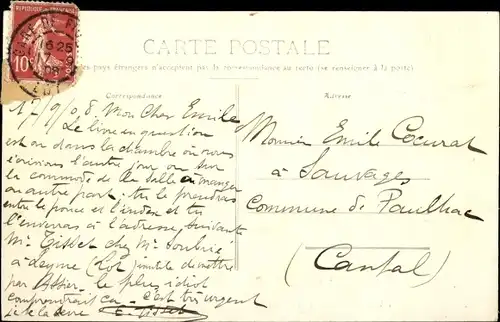 CARTE POSTALE
des pays étrangers n'acceptent pas la correspondance au recto (se renseigner à la poste).
Correspondance
Adresse
REPUBLIQUE FRANÇAISE
10
GARE DE
6 25
08
LOT
17/9/08 Mon Cher Emile
Le livre en question
est ou dans la chambre où nous
écrivions l'autre jour ou sur
la commode de la salle à manger
ou autre part. tu le prendras
entre le pouce et l'index et tu
l'enverras à l'adresse suivante
Mr Tisset chez Mr
à (Lot) inutile de mettre
par Assier. le plus idiot
comprendrait ça. c'est très urgent
je te la serre
Monsieur Emile Cocural
à Sauvages
Commune de Paulhac
(Cantal)